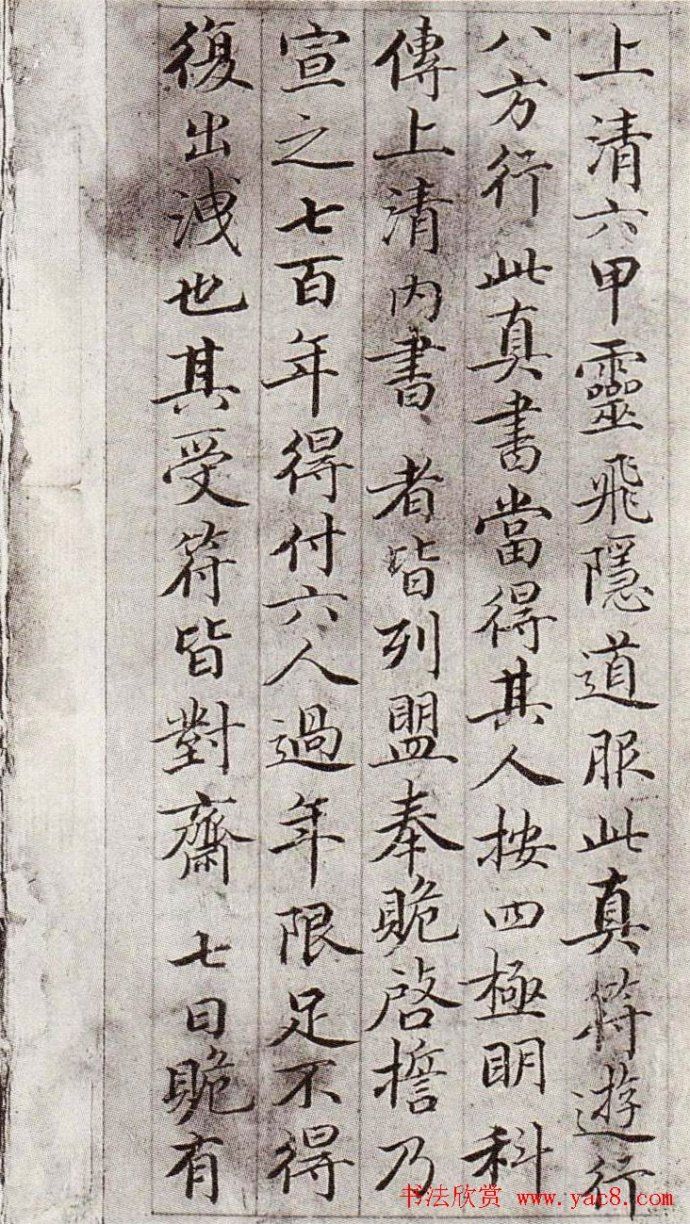 上清六甲靈飛隱道服此真符遊行
八方行此真書當得其人按四極明科
傳上清內書者皆列盟奉贍啓擔乃
宣之七百年得付六人過年限足不得
復出洩也其受符皆對齋七日贍有
书法欣赏 www.yac8.com